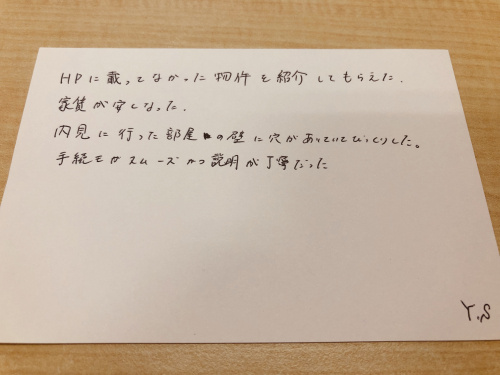 HPに載ってなかった物件を紹介してもらえた.
家賃が安くなった.
内見に行った部屋の壁に穴があいていてびっくりした。
手続きがスムーズかつ説明が丁寧だった
Y.S